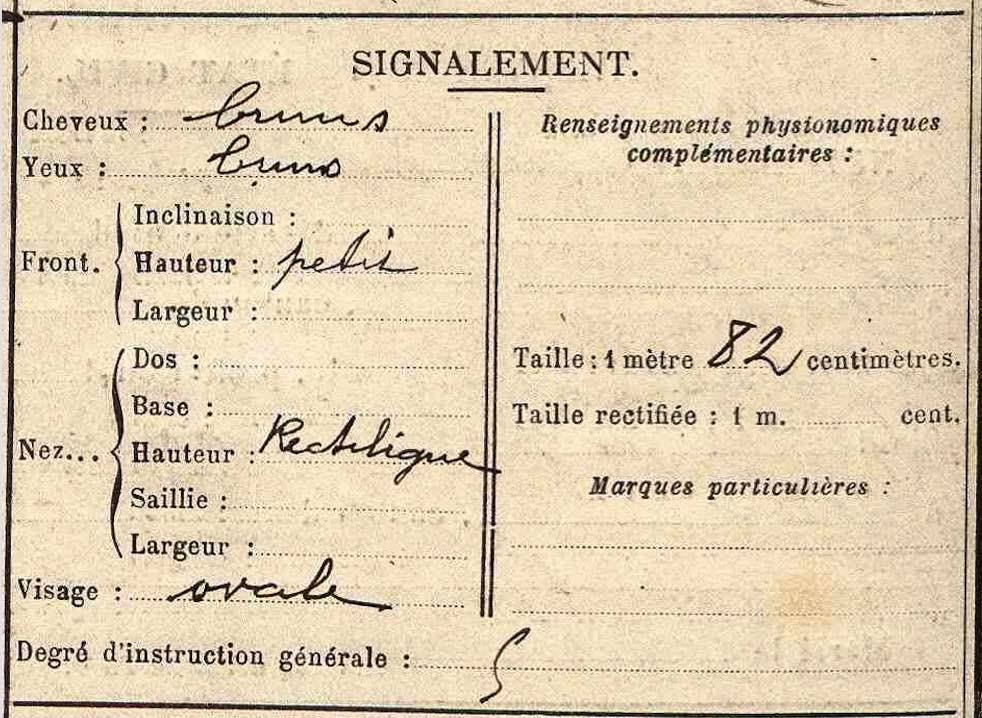 SIGNALEMENT.
Cheveux : bruns
Yeux : bruns
Front.
Inclinaison :
Hauteur : petit
Largeur :
Nez...
Dos :
Base :
Hauteur : Rectiligne
Saillie :
Largeur :
Visage : ovale
Renseignements physionomiques
complémentaires :
Taille : 1 mètre 82 centimètres.
Taille rectifiée : 1 m. cent.
Marques particulières :
Degré d'instruction générale :